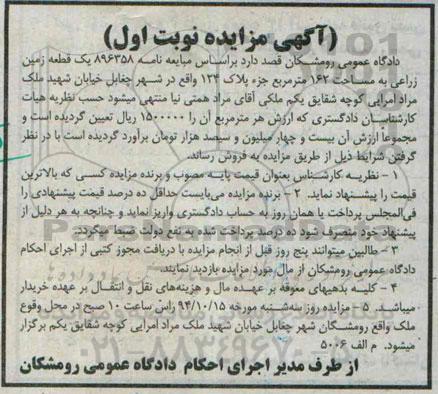 (آگهی مزایده نوبت اول)
دادگاه عمومی رومشکان قصد دارد براساس مبایعه نامه ۸۹۶۳۵۸ یک قطعه زمین
زراعی به مساحت ۱۶۲ مترمربع جزء پلاک ۱۲۴ واقع در شهر چغابل خیابان شهید ملک
مراد امرایی کوچه شقایق یکم ملکی آقای مراد همتی نیا منتهی میشود حسب نظریه هیات
کارشناسان دادگستری که ارزش هر مترمربع آن را ۱۵۰۰۰۰۰ ریال تعیین گردیده است و
مجموعاً ارزش آن بیست و چهار میلیون و سیصد هزار تومان برآورد گردیده است با در نظر
گرفتن شرایط ذیل از طریق مزایده به فروش رساند.
۱ - نظریه کارشناس بعنوان قیمت پایه مصوب و برنده مزایده کسی که بالاترین
قیمت را پیشنهاد نماید. ۲- برنده مزایده می‌بایست حداقل ده درصد قیمت پیشنهادی را
فی‌المجلس پرداخت یا همان روز به حساب دادگستری واریز نماید و چنانچه به هر دلیل از
پیشنهاد خود منصرف شود ده درصد پرداخت شده به نفع دولت ضبط میگردد.
۳ - طالبین میتوانند پنج روز قبل از انجام مزایده با دریافت مجوز کتبی از اجرای احکام
دادگاه عمومی رومشکان از مال مورد مزایده بازدید نمایند.
۴ - کلیه بدهیهای معوقه بر عهده مال و هزینه‌های نقل و انتقال بر عهده خریدار
میباشد. ۵ - مزایده روز سه‌شنبه مورخه ۹۴/۱۰/۱۵ راس ساعت ۱۰ صبح در محل وقوع
ملک واقع رومشکان شهر چغابل خیابان شهید ملک مراد امرایی کوچه شقایق یکم برگزار
میشود. م الف ۵۰۰۶
از طرف مدیر اجرای احکام دادگاه عمومی رومشکان
۰۲۱-۸۸۳۴۹۶۷۰